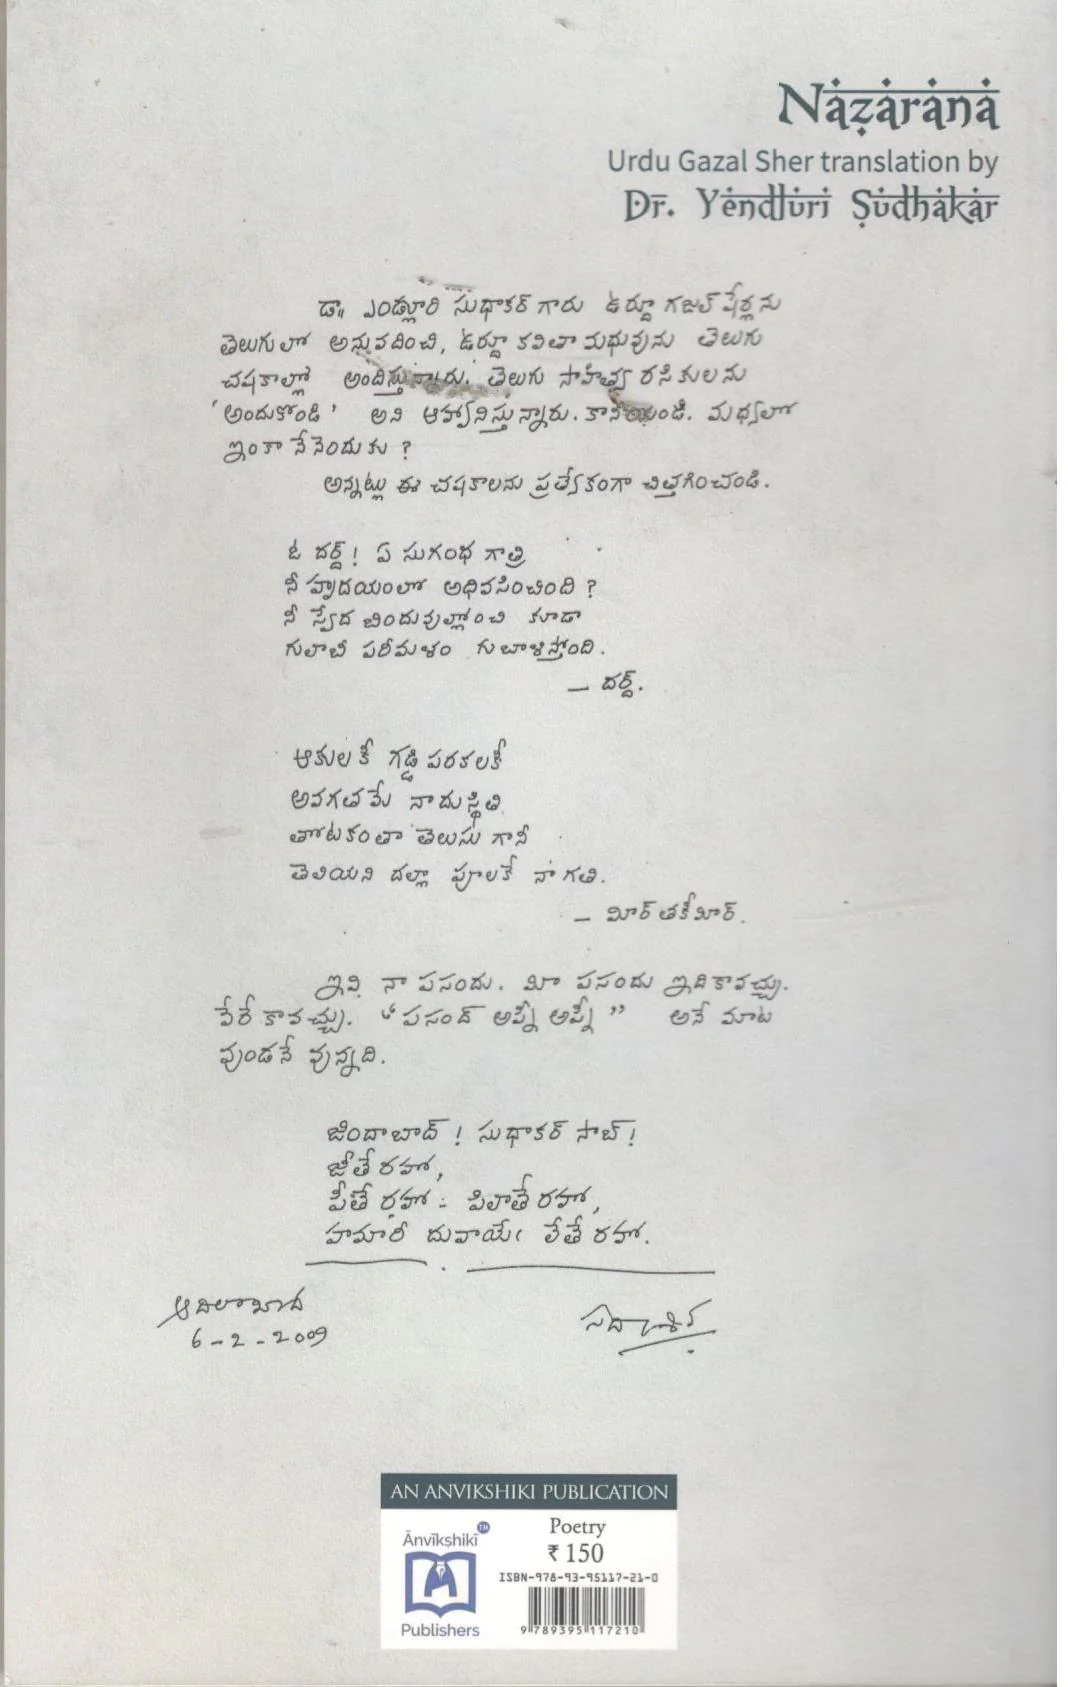 Nazarana
Urdu Gazal Sher translation by
Dr. Yendluri Sudhakar
డా॥ ఎండ్లూరి సుధాకర్ గారు ఉర్దూ గజల్ షేర్లను
తెలుగులో అనువదించి, ఉర్దూ కవితా మధువును తెలుగు
చషకాల్లో అందిస్తున్నారు. తెలుగు సాహిత్య రసికులను
'అందుకోండి' అని ఆహ్వానిస్తున్నారు. కానీయండి. మధ్యలో
ఇంకా నేనెందుకు ?
అన్నట్లు ఈ చషకాలను ప్రత్యేకంగా చిత్తగించండి.
ఓ దర్ద్! ఏ సుగంధ గాత్రి
నీ హృదయంలో అధివసించింది ?
నీ స్వేద బిందువుల్లోంచి కూడా
గులాబీ పరీమళం గుబాళిస్తోంది.
– దర్ద్.
ఆకులకే గడ్డి పరకలకే
అవగతమే నా దుస్థితి
తోటకంతా తెలుసు గానీ
తెలియని దల్లా పూలకే నా గతి.
– మీర్ తకీమీర్.
ఇవి నా పసందు. మీ పసందు ఇదికావచ్చు.
వేరే కావచ్చు. “పసంద్ అప్నీ అప్నీ” అనే మాట
వుండనే వున్నది.
జిందాబాద్ ! సుధాకర్ సాబ్!
జీతే రహో,
పీతే రహో - పిలాతే రహో,
హమారీ దువాయేఁ లేతే రహో.
ఆదిలాబాద్
6-2-2009
సదాశివ
AN ANVIKSHIKI PUBLICATION
Ānvīkṣhikī TM
Publishers
Poetry
₹ 150
ISBN-978-93-95117-21-0
9 789395 117210